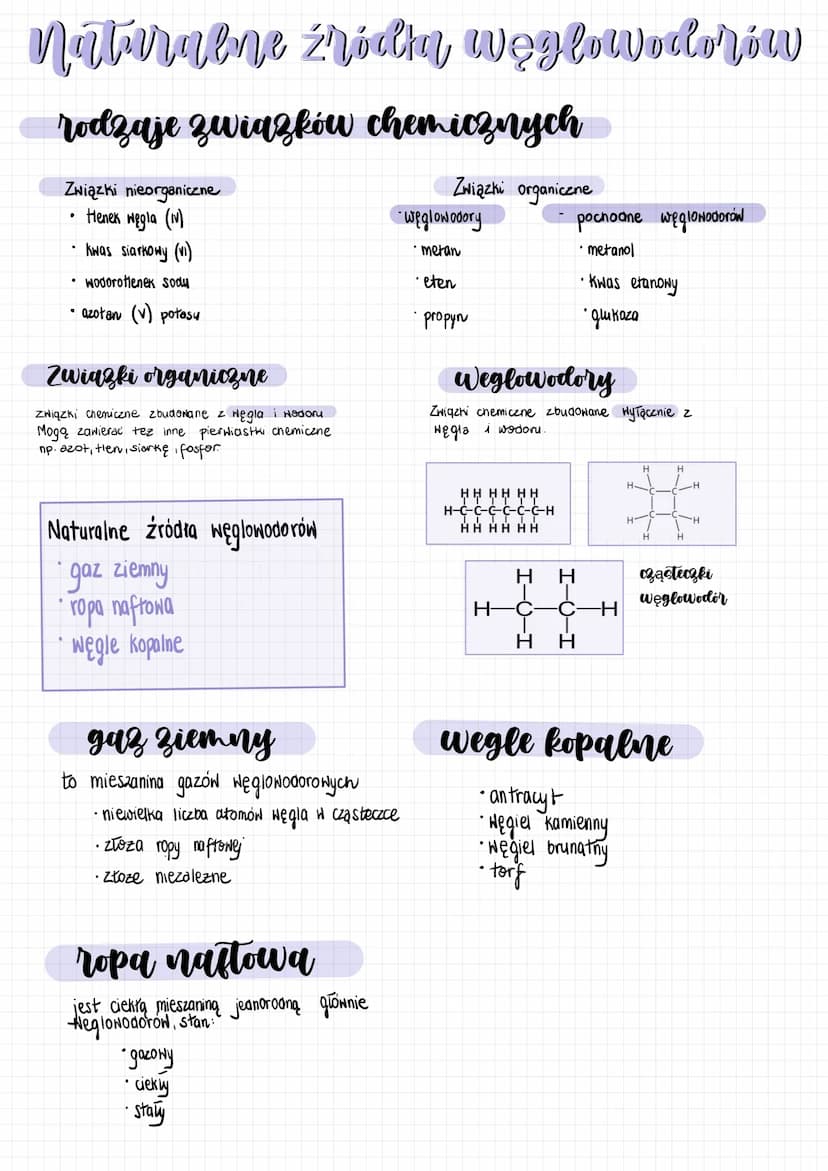 Naturalne źródła węglowodorów
rodzaje związków chemicznych
Związki nieorganiczne
• tlenek węgla (IV)
• kwas siarkowy (VI)
• wodorotlenek sodu
• azotan (V) potasu
Związki organiczne
- węglowodory
• metan
• eten
• propyn
- pochodne węglowodorów
• metanol
• kwas etanowy
• glukoza
Związki organiczne
związki chemiczne zbudowane z węgla i wodoru
Mogą zawierać też inne pierwiastki chemiczne
np. azot, tlen, siarkę, fosfor
Węglowodory
Związki chemiczne zbudowane wyłącznie z
węgla i wodoru.
H H H H H H
H-C-C-C-C-C-C-H
H H H H H H
H H
H-C-C-H
H-C-C-H
H H
H H
H-C-C-H
H H
cząsteczki
węglowodór
Naturalne źródła węglowodorów
• gaz ziemny
• ropa naftowa
• węgle kopalne
gaz ziemny
to mieszanina gazów węglowodorowych
• niewielka liczba atomów węgla w cząsteczce
• złoża ropy naftowej
• złoże niezależne
węgle kopalne
• antracyt
• węgiel kamienny
• węgiel brunatny
• torf
ropa naftowa
jest ciekłą mieszaniną jednorodną głównie
węglowodorów, stan:
• gazowy
• ciekły
• stały